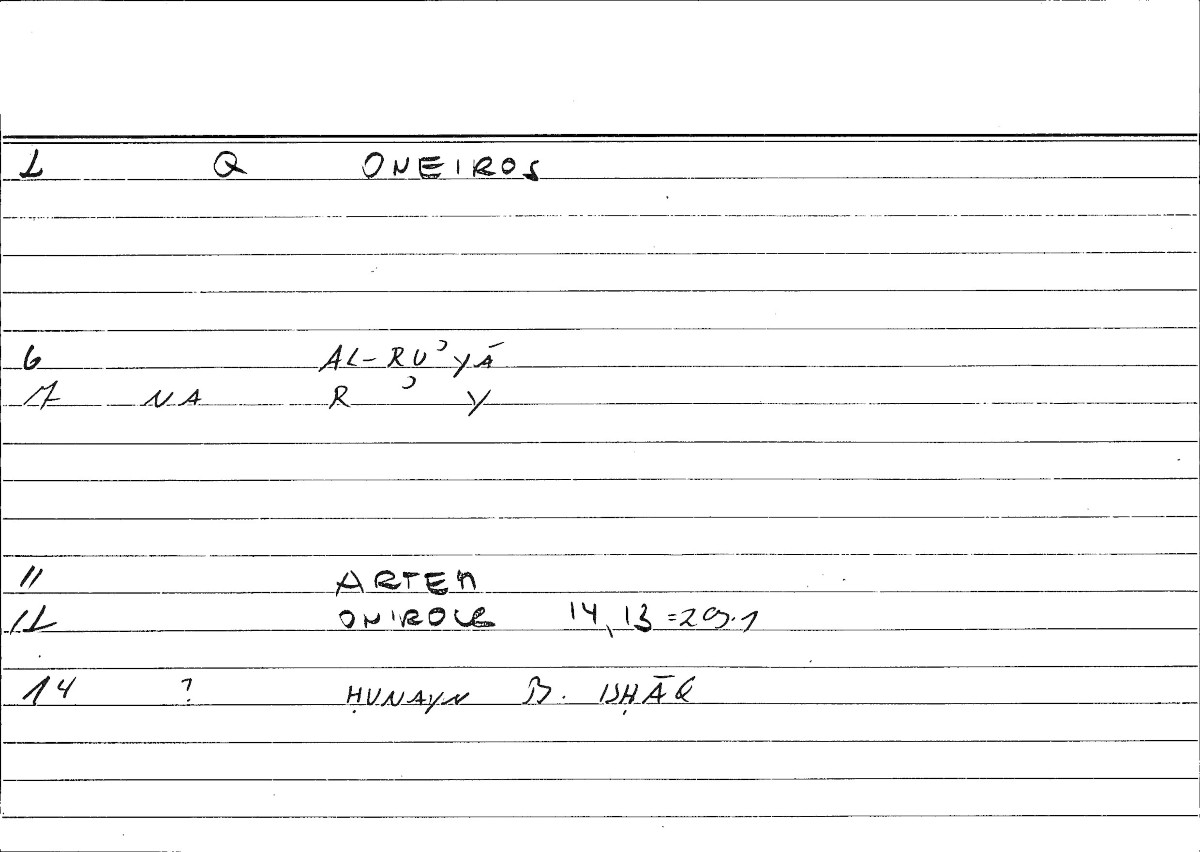 1 Q ONEIROS
6 AL-RUʾYĀ
7 NA R ʾ Y
11 ARTEM
12 ONIROCR 14,13 = 29.1
14 ? ḤUNAYN B. ISḤĀQ